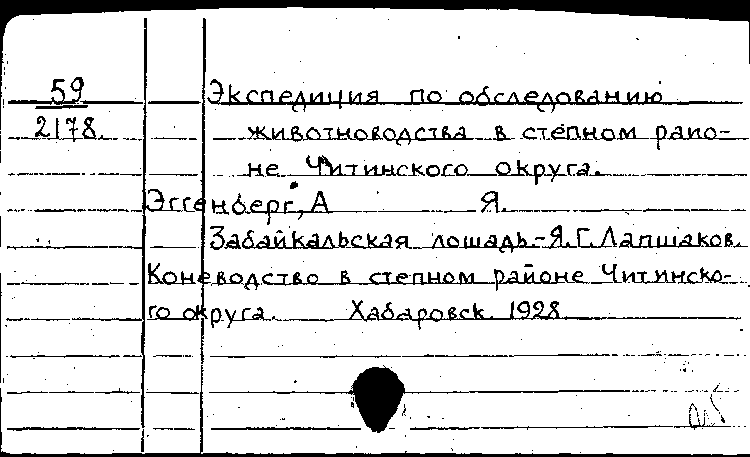 59
2178.
Экспедиция по обследованию
животноводства в степном райо-
не Читинского округа.
Эггенберг, А Я.
Забайкальская лошадь.-Я.Г. Лапшаков.
Коневодство в степном районе Читинско-
го округа. Хабаровск. 1928